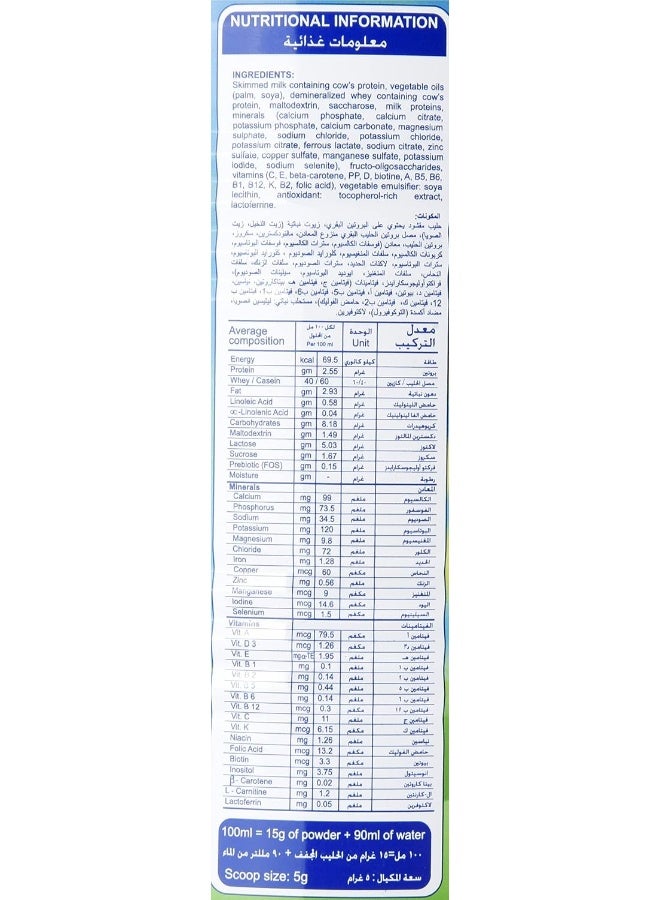 NUTRITIONAL INFORMATION
معلومات غذائية
INGREDIENTS:
Skimmed milk containing cow's protein, vegetable oils
(palm, soya), demineralized whey containing cow's
protein, maltodextrin, saccharose, milk proteins,
minerals (calcium phosphate, calcium citrate,
potassium phosphate, calcium carbonate, magnesium
sulphate, sodium chloride, potassium chloride,
potassium citrate, ferrous lactate, sodium citrate, zinc
sulfate, copper sulfate, manganese sulfate, potassium
iodide, sodium selenite), fructo-oligosaccharides,
vitamins (C, E, beta-carotene, PP, D, biotine, A, B5, B6,
B1, B12, K, B2, folic acid), vegetable emulsifier: soya
lecithin, antioxidant: tocopherol-rich extract,
lactoferrine.
المكونات:
حليب مقشود يحتوي على البروتين البقري، زيوت نباتية (زيت النخيل، زيت
الصويا)، مصل بروتين الحليب البقري منزوع المعادن، مالتودكسترين، سكروز،
بروتين الحليب، معادن (فوسفات الكالسيوم، سترات الكالسيوم، فوسفات البوتاسيوم،
كربونات الكالسيوم، سلفات المنغيسيوم، كلورايد الصوديوم، كلورايد البوتاسيوم،
سترات البوتاسيوم، لاكتات الحديد، سترات الصوديوم، سلفات الزنك، سلفات
النحاس، سلفات المنغنيز، ايوديد البوتاسيوم، سيلينات الصوديوم)،
فراكتوأوليجوسكارايدز، فيتامينات (فيتامين ج، فيتامين هـ، بيتاكاروتين، نياسين،
فيتامين د، بيوتين، فيتامين أ، فيتامين ب5، فيتامين ب6، فيتامين ب1، فيتامين ب
12، فيتامين ك، فيتامين ب2، حامض الفوليك)، مستحلب نباتي: ليثيسين الصويا،
مضاد أكسدة (التوكوفيرول)، لاكتوفيرين
Average composition لكل ١٠٠ مل من المحلول Per 100 ml الوحدة Unit معدل التركيب
Energy kcal 69.5 كيلو كالوري طاقة
Protein gm 2.55 غرام بروتين
Whey / Casein 40 / 60 ٦٠/٤٠ مصل الحليب / كازيين
Fat gm 2.93 غرام دهون نباتية
Linoleic Acid gm 0.58 غرام حامض اللينوليك
∝-Linolenic Acid gm 0.04 غرام حامض الفا لينولينيك
Carbohydrates gm 8.18 غرام كربوهيدرات
Maltodextrin gm 1.49 غرام دكسترين المالتوز
Lactose gm 5.03 غرام لاكتوز
Sucrose gm 1.67 غرام سكروز
Prebiotic (FOS) gm 0.15 غرام فركتو أوليجوسكارايدز
Moisture gm - غرام رطوبة
Minerals المعادن
Calcium mg 99 ملغم الكالسيوم
Phosphorus mg 73.5 ملغم الفوسفور
Sodium mg 34.5 ملغم الصوديوم
Potassium mg 120 ملغم البوتاسيوم
Magnesium mg 9.8 ملغم المغنيسيوم
Chloride mg 72 ملغم الكلور
Iron mg 1.28 ملغم الحديد
Copper mcg 60 مكغم النحاس
Zinc mg 0.56 ملغم الزنك
Manganese mcg 9 مكغم المنغنيز
Iodine mcg 14.6 مكغم اليود
Selenium mcg 1.5 مكغم السيلينيوم
Vitamins الفيتامينات
Vit. A mcg 79.5 مكغم فيتامين أ
Vit. D 3 mcg 1.26 مكغم فيتامين د٣
Vit. E mgα-TE 1.95 ملغم فيتامين هـ
Vit. B 1 mg 0.1 ملغم فيتامين ب ١
Vit. B 2 mg 0.14 ملغم فيتامين ب ٢
Vit. B 5 mg 0.44 ملغم فيتامين ب ٥
Vit. B 6 mg 0.14 ملغم فيتامين ب ٦
Vit. B 12 mcg 0.3 مكغم فيتامين ب ١٢
Vit. C mg 11 ملغم فيتامين ج
Vit. K mcg 6.15 مكغم فيتامين ك
Niacin mg 1.26 ملغم نياسين
Folic Acid mcg 13.2 مكغم حامض الفوليك
Biotin mcg 3.3 مكغم بيوتين
Inositol mg 3.75 ملغم انوسيتول
β- Carotene mg 0.02 ملغم بيتا كاروتين
L - Carnitine mg 1.2 ملغم ال-كارنتين
Lactoferrin mg 0.05 ملغم لاكتوفرين
100ml = 15g of powder + 90ml of water
١٠٠ مل=١٥ غرام من الحليب المجفف + ٩٠ مللتر من الماء
Scoop size: 5g سعة المكيال: ٥ غرام